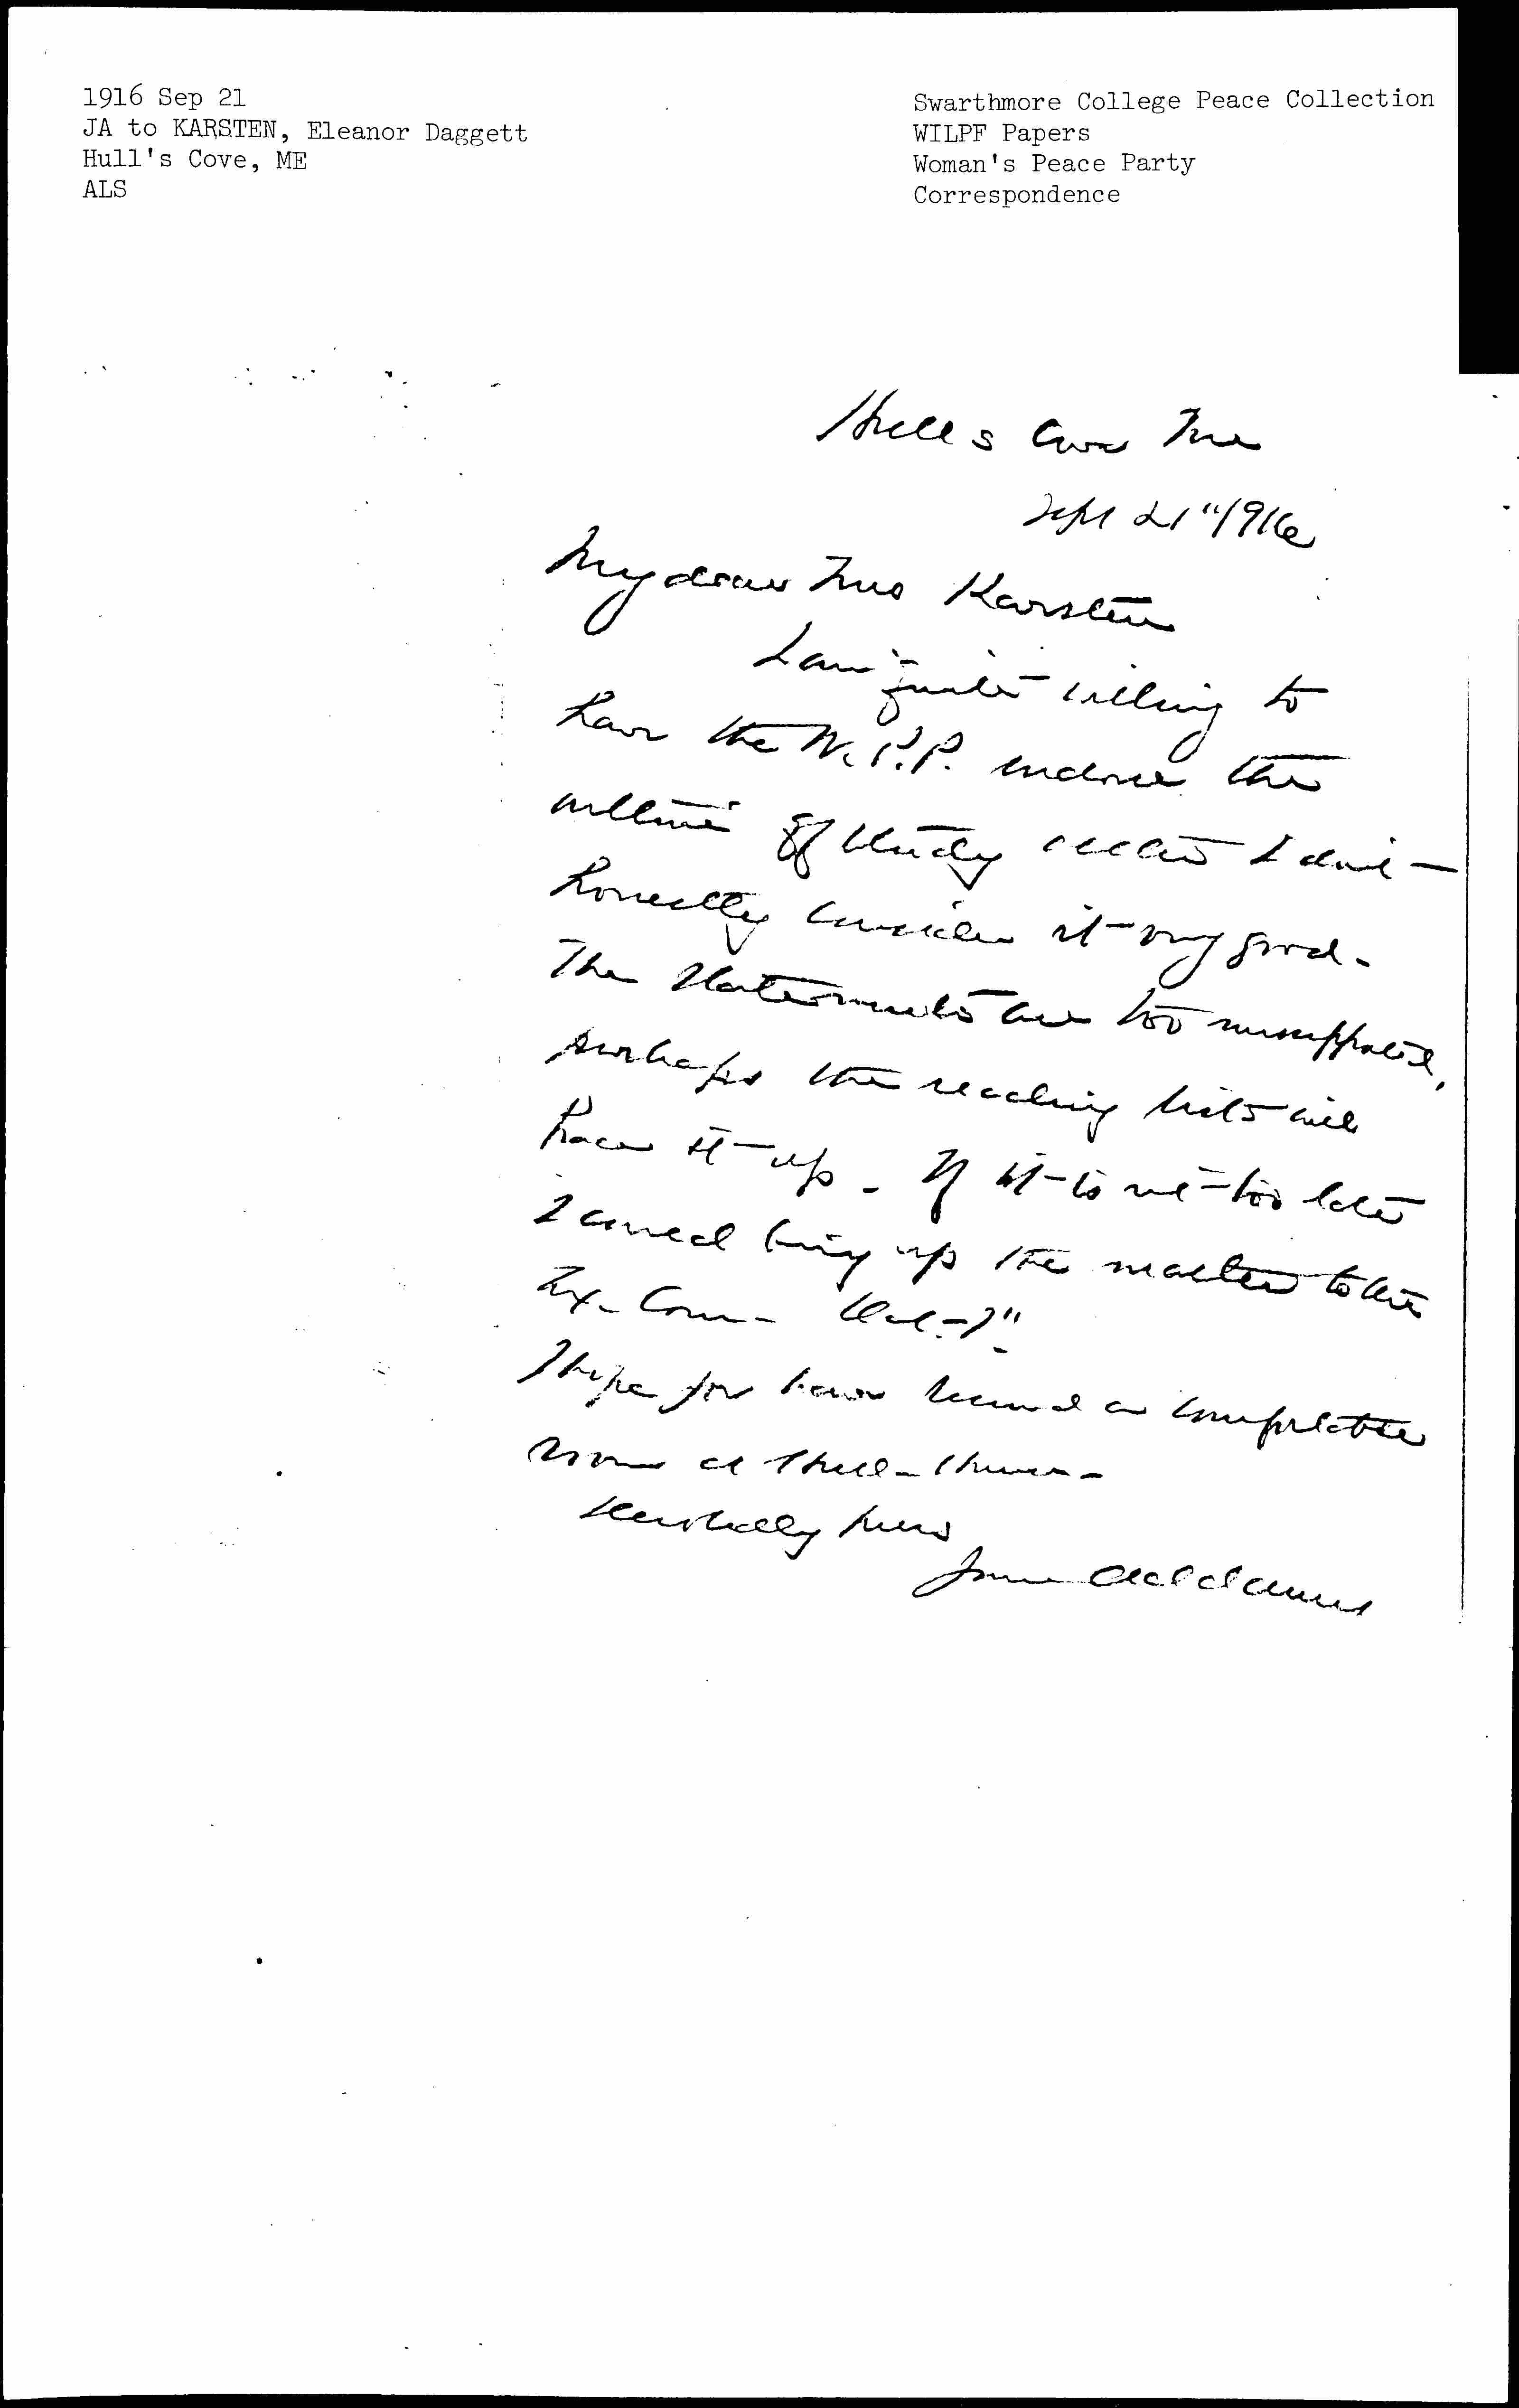 1916 Sep 21
JA to KARSTEN, Eleanor Daggett
Hull's Cove, ME
ALS
Swarthmore College Peace Collection
WILPF Papers
Woman's Peace Party
Correspondence
Hulls Cove Me
Sept 21" 1916
My dear Mrs Karsten
I am quite willing to
have the W.P.P. endorse the
outline of study altho I don't
honestly consider it very good.
The statements are too unsupported,
perhaps the reading lists will
brace it up. If it is not too late
I could bring up the matter to the
Ex. Com. Oct. 7"
I hope you have found a comfortable
room at Hull-House.
Hastily yours
Jane Addams